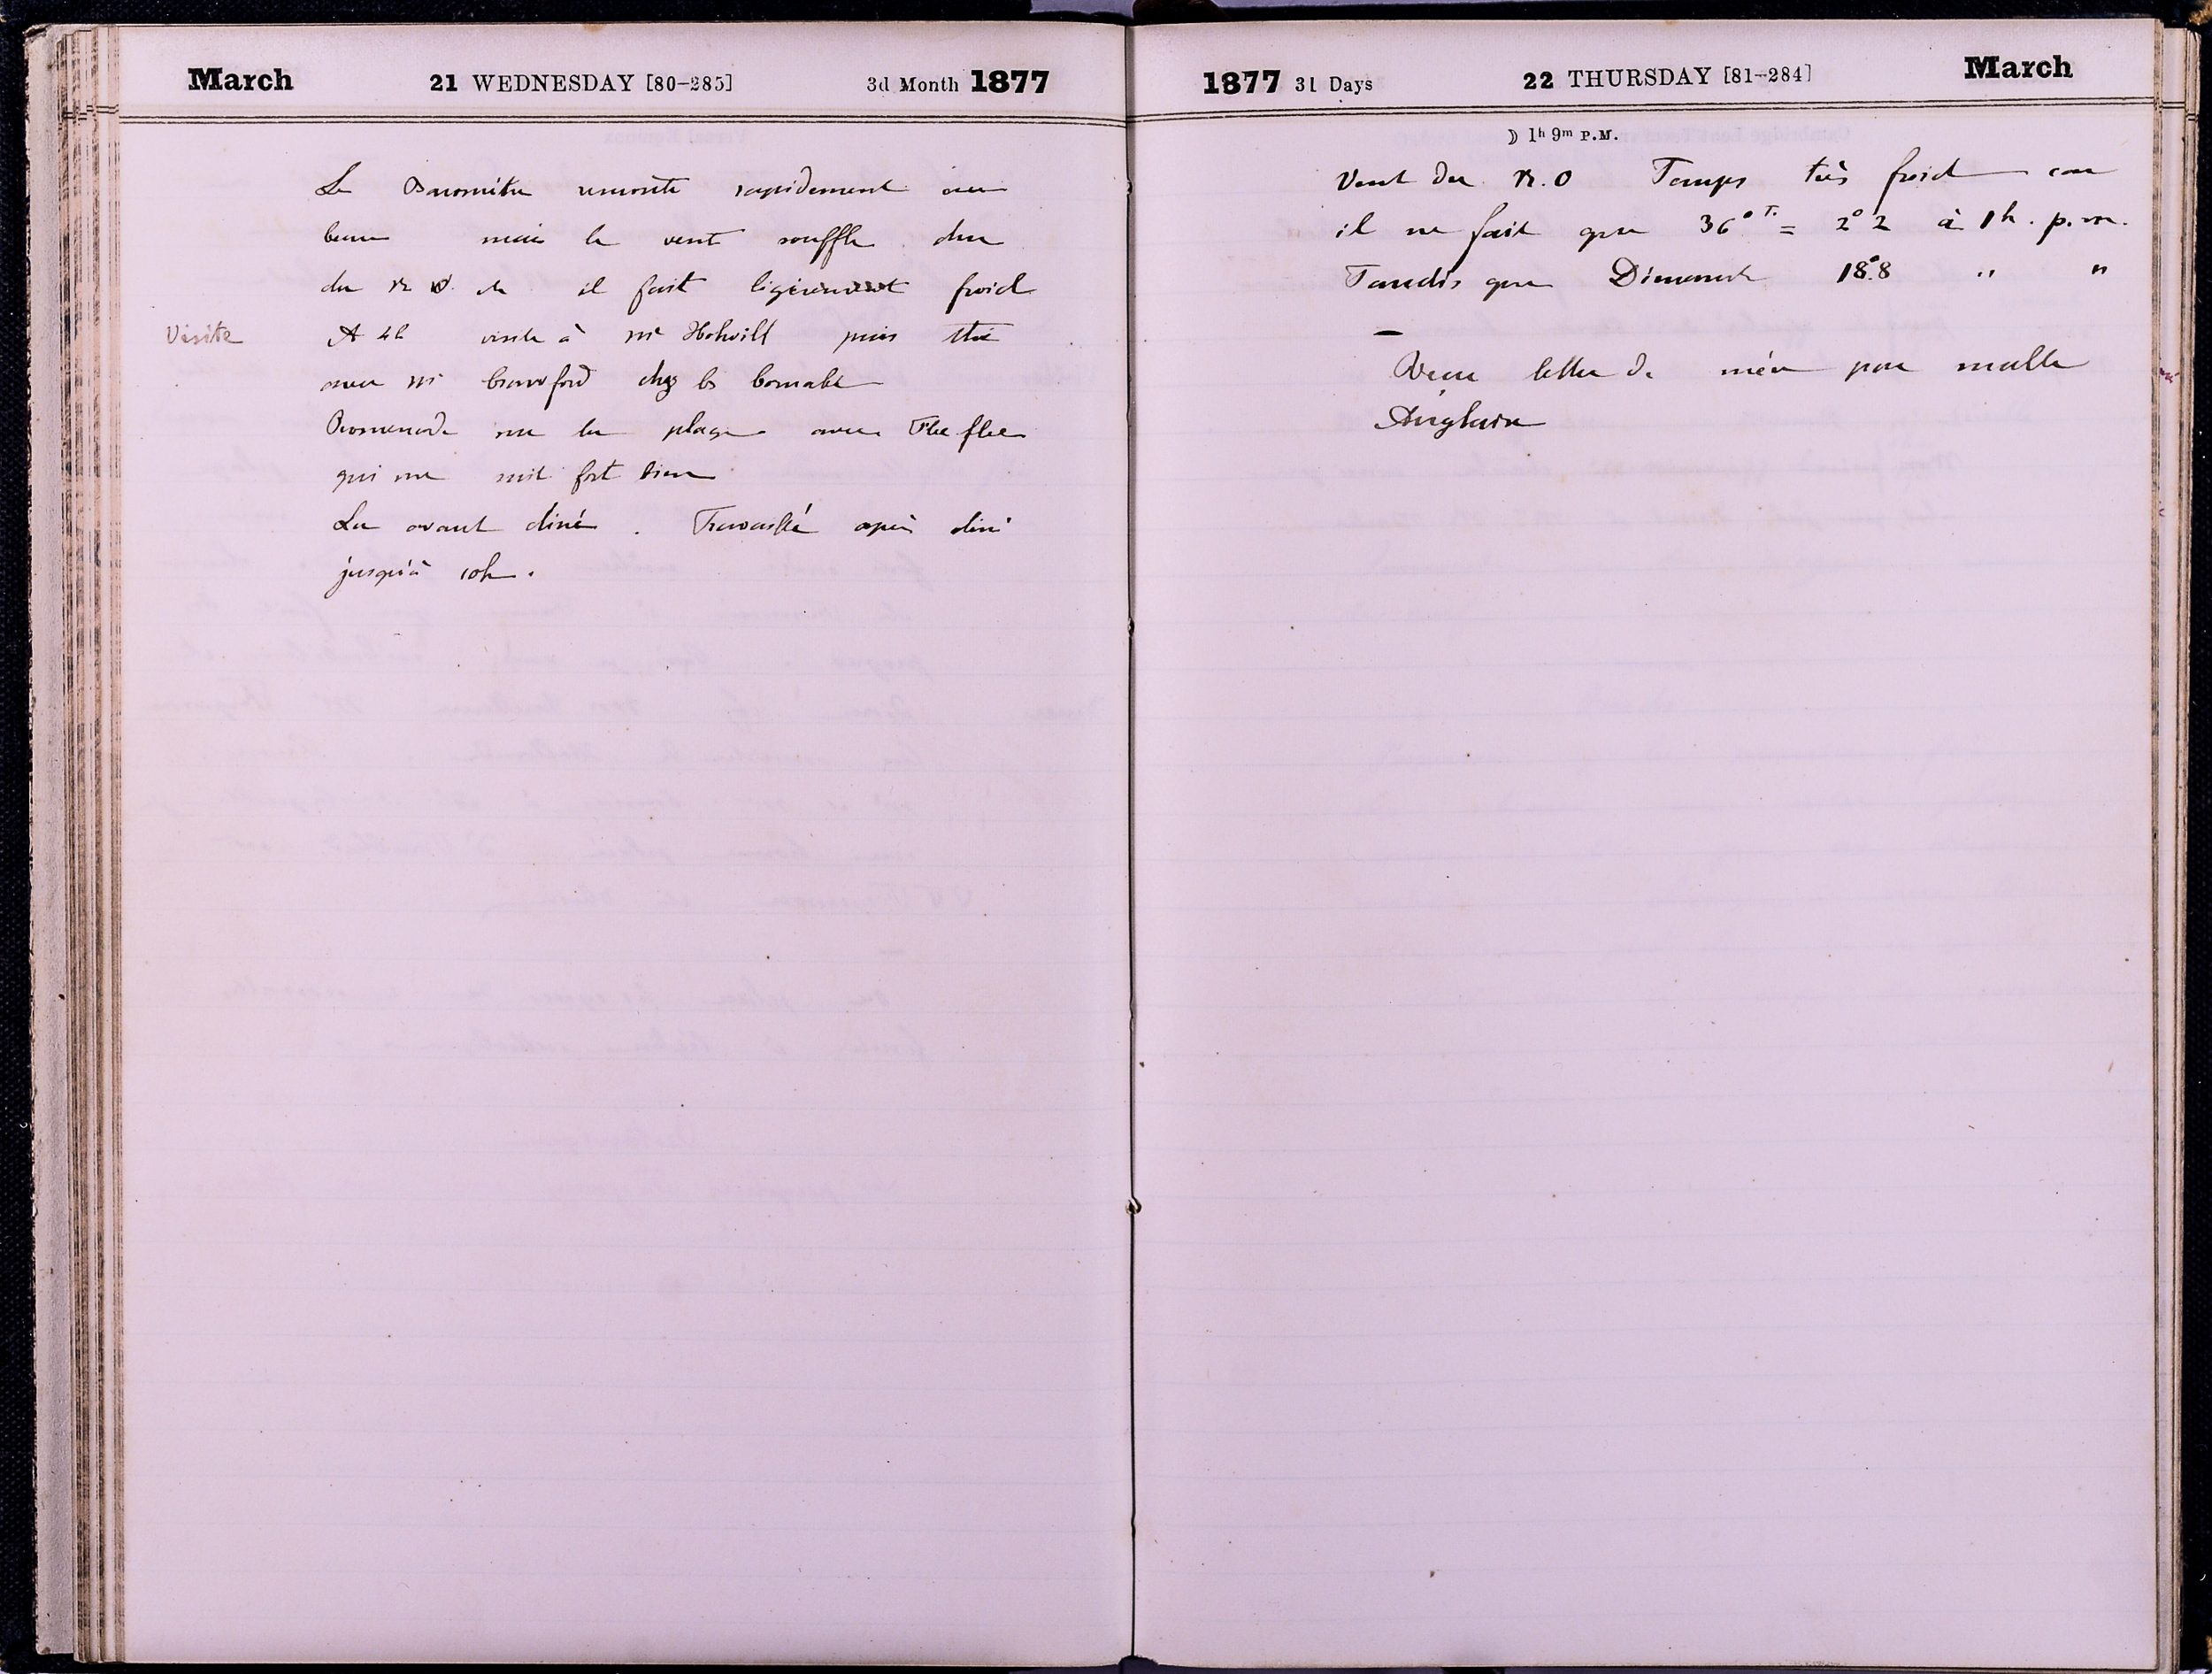 March 21 WEDNESDAY [80-285] 3d Month 1877
Le Baromètre remonte rapidement au
beau mais le vent souffle
du N O et il fait légèrement froid
Visite A 4h visite à Mr puis thé
avec Mr Crawford chez les
Promenade sur la plage avec Flee flee
qui me suit fort bien
Lu avant diné. Travaillé après diné
jusqu'à 10h.
1877 31 Days 22 THURSDAY [81-284] March
☽ 1h 9m P.M.
Vent du N.O Temps très froid car
il ne fait que 36° T. = 2°2 à 1h. p.m.
Tandis que Dimanche 18°8 " "
—
Reçu lettre de mère par malle
Anglaise